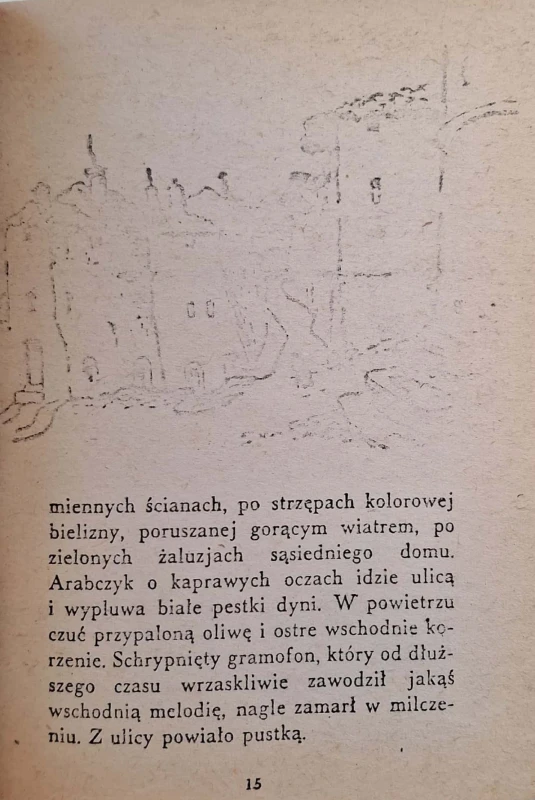 miennych ścianach, po strzępach kolorowej
bielizny, poruszanej gorącym wiatrem, po
zielonych żaluzjach sąsiedniego domu.
Arabczyk o kaprawych oczach idzie ulicą
i wypluwa białe pestki dyni. W powietrzu
czuć przypaloną oliwę i ostre wschodnie ko-
rzenie. Schrypnięty gramofon, który od dłuż-
szego czasu wrzaskliwie zawodził jakąś
wschodnią melodię, nagle zamarł w milcze-
niu. Z ulicy powiało pustką.
15